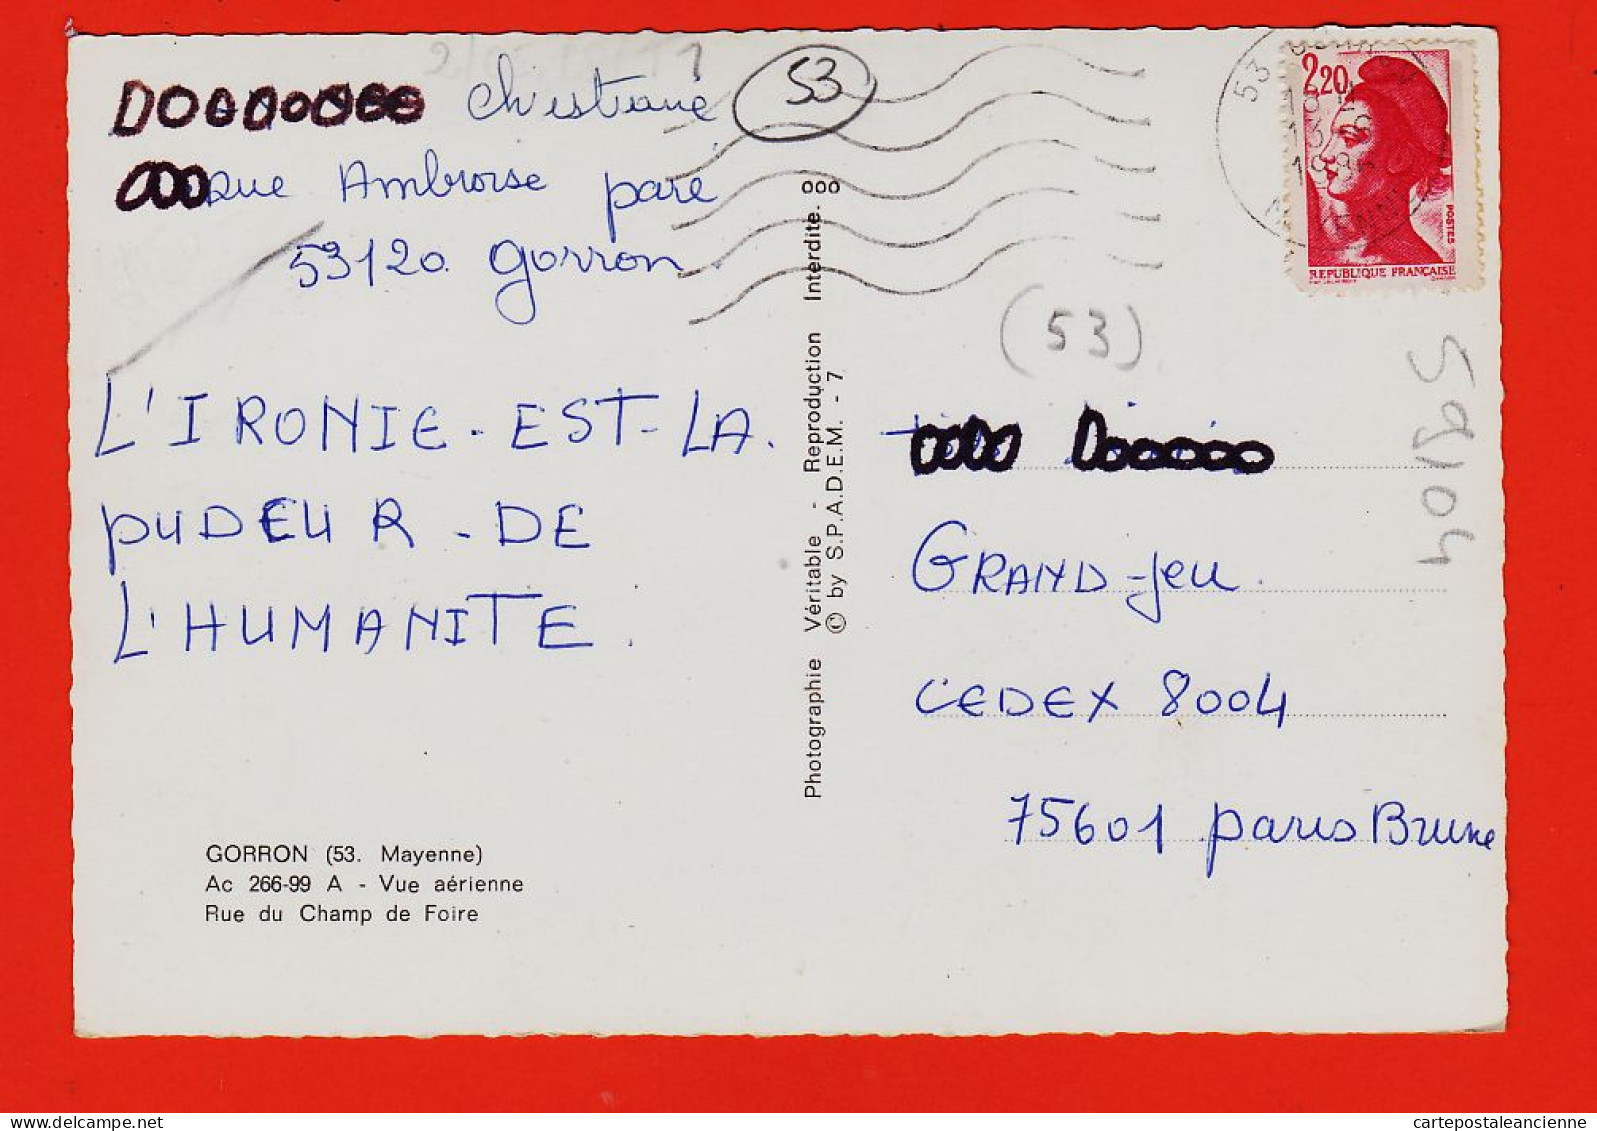 Christiane
53
rue Ambroise paré
53120 gorron.
L'IRONIE-EST-LA.
PUDEUR-DE
L'HUMANITE.
GORRON (53. Mayenne)
Ac 266-99 A - Vue aérienne
Rue du Champ de Foire
Photographie Véritable - Reproduction Interdite. 000
© by S.P.A.D.E.M. - 7
2,20
POSTES
REPUBLIQUE FRANÇAISE
53
13
(53)
GRAND-Jeu.
CEDEX 8004
75601 paris Brune
cartepostaleancienne